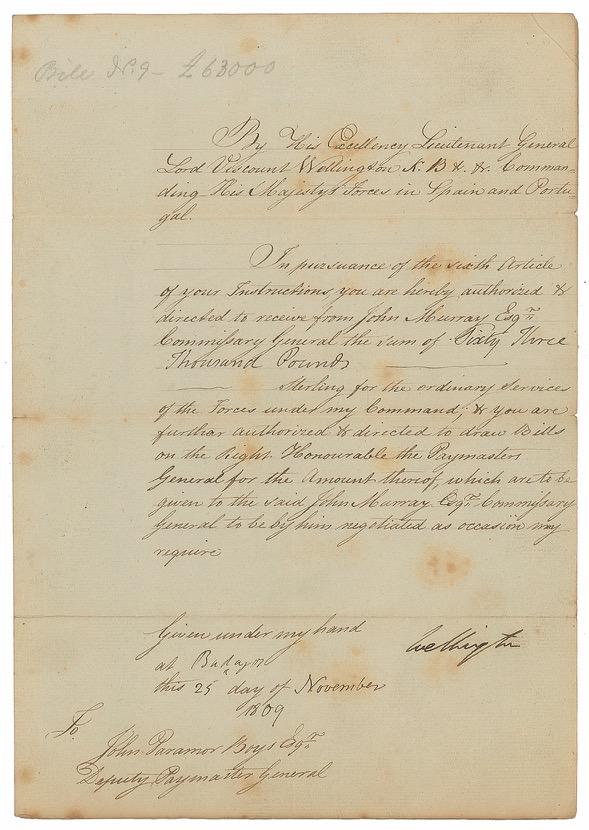 Bill No. 9 - £63000
By His Excellency Lieutenant General
Lord Viscount Wellington K. B &. &. Comman-
ding His Majesty's Forces in Spain and Portu-
gal.
In pursuance of the sixth Article
of your Instructions you are hereby authorized &
directed to receive from John Murray Esqre.
Commissary General the Sum of Sixty Three
Thousand Pounds
Sterling for the ordinary Services
of the Forces under my Command; & you are
further authorized & directed to draw Bills
on the Right Honourable the Paymasters
General for the Amount thereof, which are to be
given to the said John Murray Esqre. Commissary
General to be by him negotiated as occasion may
require
Given under my hand
at Badajoz
this 25 day of November
1809
Wellington
To
John Paramor Boys Esqre.
Deputy Paymaster General